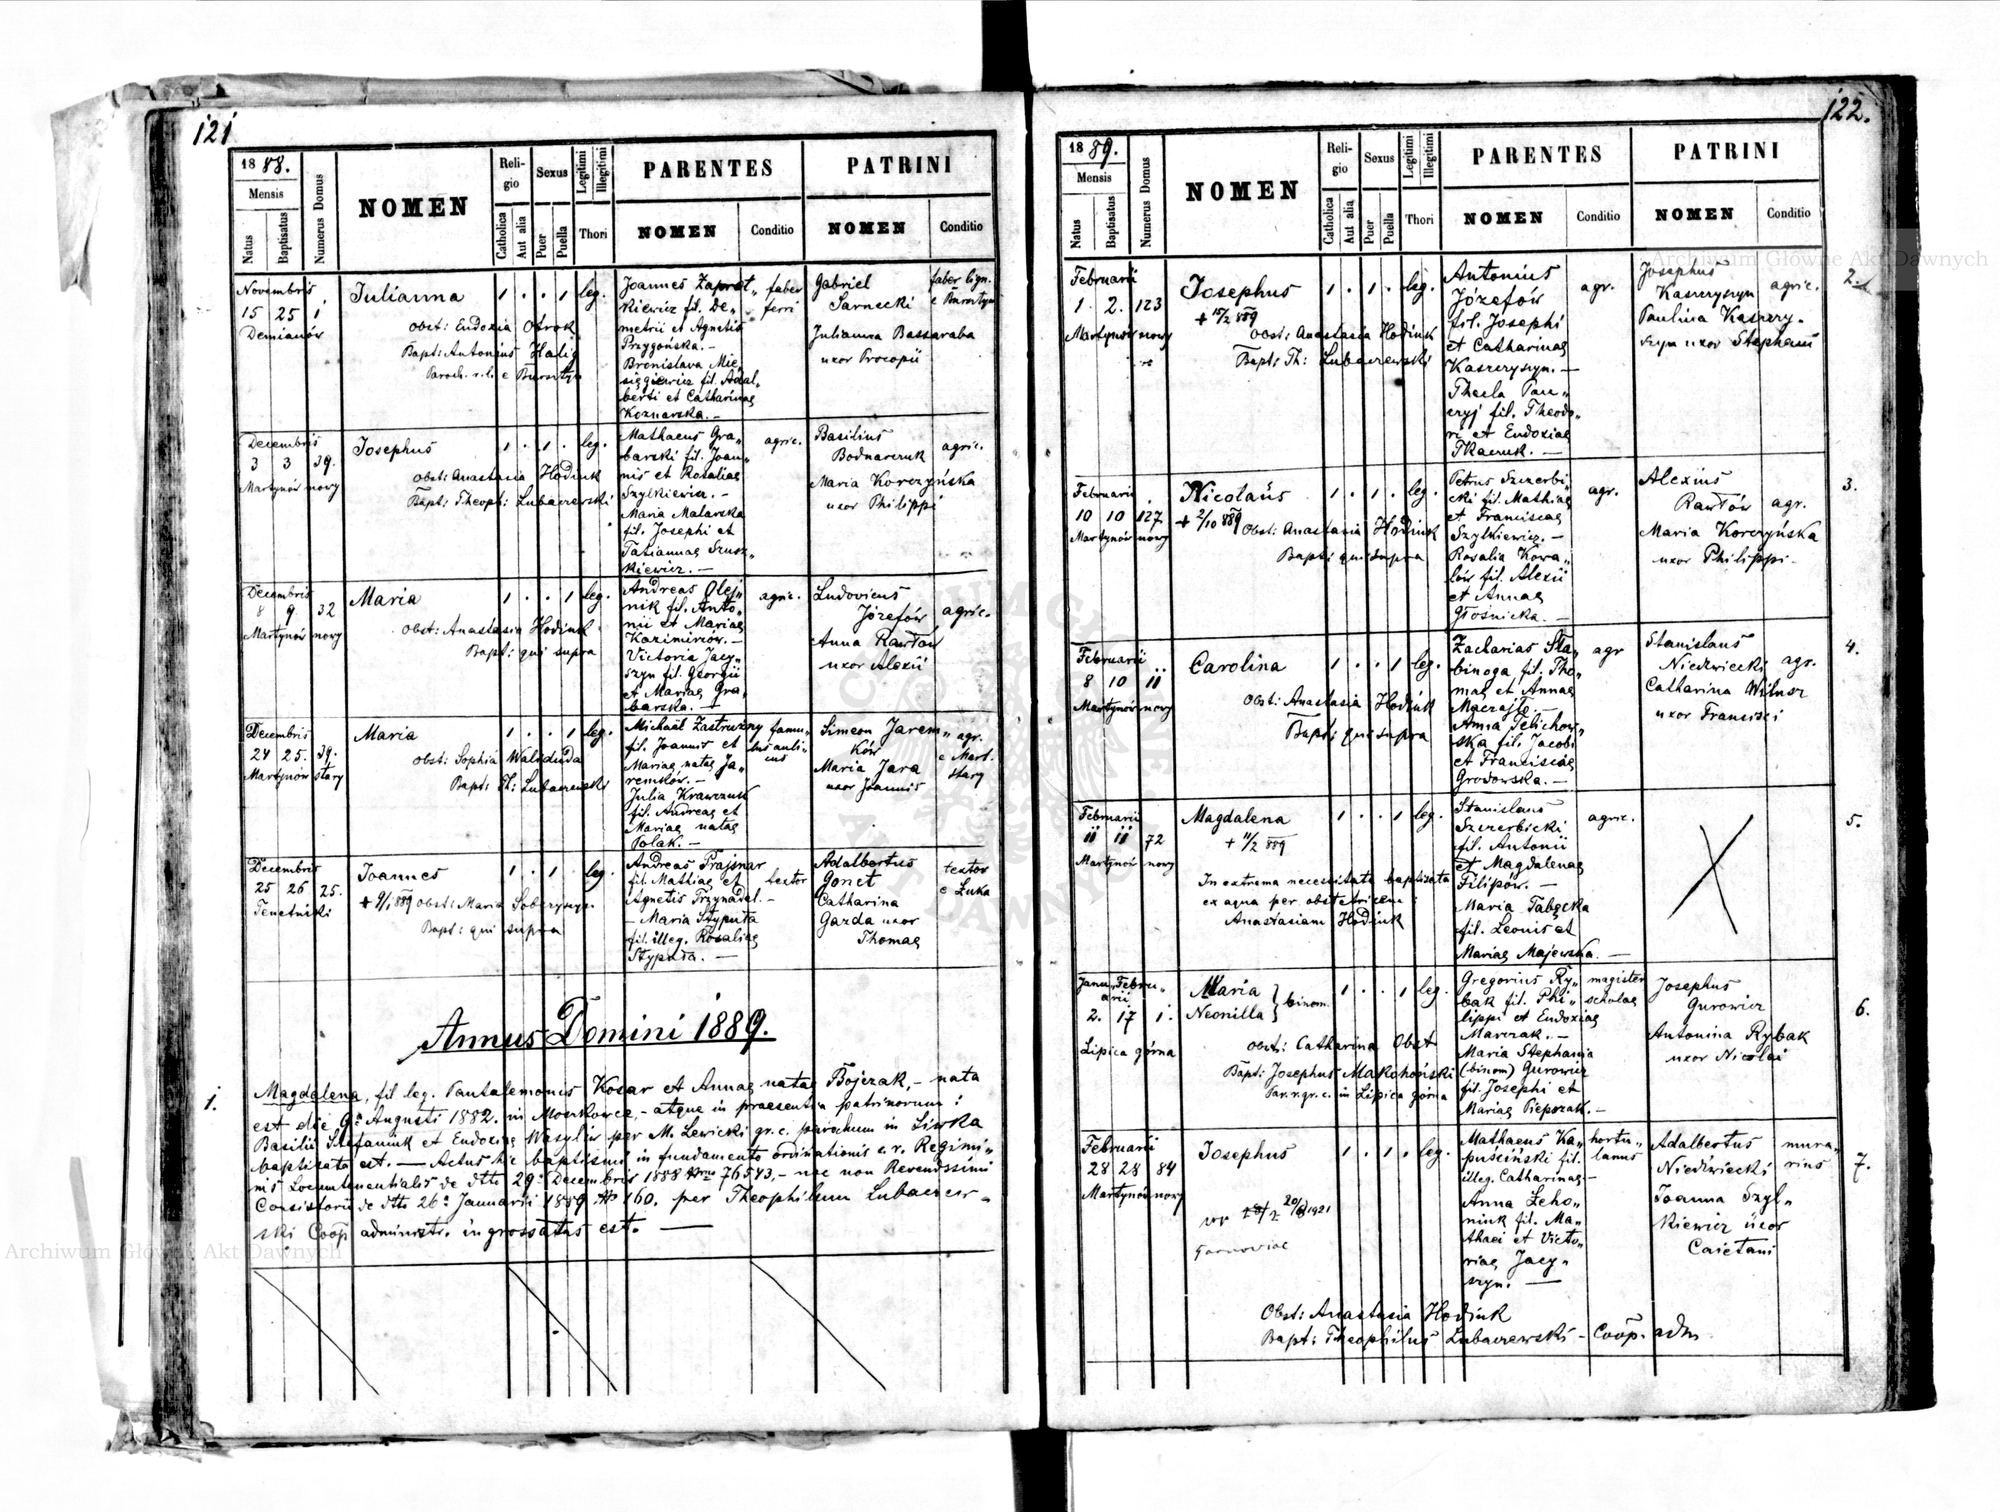 121
1888.
Mensis
Natus
Baptisatus
Numerus Domus
NOMEN
Religio
Catholica
Aut alia
Sexus
Puer
Puella
Legitimi
Illegitimi
Thori
PARENTES
NOMEN
Conditio
PATRINI
NOMEN
Conditio
Novembris
15 25 1
Demianów
Julianna
Obst: Eudoxia Otrok
Bapt: Antonius Halig
Paroch. r. l. e Bursztyn
1 . . 1 leg.
Joannes Zaprot„
kiewicz fil. De„
metrii et Agnetis
Przygońska. –
Bronislava Mie„
sięgiewicz fil. Adal„
berti et Catharinae
Koznarska. –
faber
ferri
Gabriel
Sarnecki
Julianna Bassaraba
uxor Procopii
faber lign.
e Bursztyn
Decembris
3 3 39.
Martynów nowy
Josephus
Obst: Anastasia Hodiuk
Bapt: Theoph: Lubaczewski
1 . 1 . leg.
Mathaeus Gra„
barski fil. Joan„
nis et Rosaliae
Szylkiewicz. –
Maria Malarska
fil. Josephi et
Tatiannae Szusz„
kiewicz. –
agric.
Basilius
Bodnarczuk
Maria Korczyńska
uxor Philippi
agric.
Decembris
8 9. 32
Martynów nowy
Maria
Obst: Anastasia Hodiuk
Bapt: qui supra
1 . . 1 leg.
Andreas Olej„
nik fil. Anto„
nii et Mariae
Kazimirów. –
Victoria Jacy„
szyn fil. Georgii
et Mariae Gra„
barska. –
agric.
Ludovicus
Józefów
Anna Rawłów
uxor Alexii
agric.
Decembris
24 25. 39.
Martynów stary
Maria
Obst: Sophia Waliduda
Bapt: Th: Lubaczewski
1 . . 1 leg.
Michaël Zastruzny
fil. Joannis et
Mariae natae Ja„
remków. –
Julia Krawczuk
fil. Andreae et
Mariae natae
Polak. –
famu„
lus auli„
cus
Simeon Jarem„
ków
Maria Jara
uxor Joannis
agr.
e Mart.
stary
Decembris
25 26 25.
Tenetniki
Joannes
+ 9/1 889 Obst: Maria Soberyszyn
Bapt: qui supra
1 . 1 . leg.
Andreas Prajsnar
fil. Mathiae et
Agnetis Przynadal. –
– Maria Stypuła
fil. illeg. Rosaliae
Stypuła. –
textor
Adalbertus
Gonet
Catharina
Gazda uxor
Thomae
textor
e Łuka
Annus Domini 1889.
1.
Magdalena, fil leg. Pantalemonis Kosar et Annae natae Bojczak, – nata
est die 9a Augusti 1882. in Moszkowce, – atque in praesentia patrinorum:
Basilii Stefaniuk et Eudoxiae Wasyliw per M. Lewicki gr. c. parochum in Siwka
baptisata est. — Actus hic baptismi in fundamento ordinationis c. r. Regimi„
nis Locumtenentialis de dtto 29a Decembris 1888 Nro 76543, – nec non Revendssimi
Consistorii de dtto 26a Januarii 1889 N 160. per Theophilum Lubaczew„
ski Coop administr. ingrossatus est. —
122.
1889.
Mensis
Natus
Baptisatus
Numerus Domus
NOMEN
Religio
Catholica
Aut alia
Sexus
Puer
Puella
Legitimi
Illegitimi
Thori
PARENTES
NOMEN
Conditio
PATRINI
NOMEN
Conditio
Februarii
1. 2. 123
Martynów nowy
Josephus
+ 15/2 889
Obst: Anastasia Hodiuk
Bapt: Th: Lubaczewski
1 . 1 . leg.
Antonius
Józefów
fil. Josephi
et Catharinae
Kaszczyszyn. –
Thecla Pau„
czyj fil. Theodo„
ri et Eudoxiae
Tkaczuk. –
agr.
Josephus
Kaszczyszyn
Paulina Kaszczy„
szyn uxor Stephani
agric.
2.
Februarii
10 10 127
Martynów nowy
Nicolaus
+ 2/10 889 Obst: Anastasia Hodiuk
Bapt: qui supra
1 . 1 . leg.
Petrus Szczerbi„
cki fil. Mathiae
et Franciscae
Szylkiewicz. –
Rosalia Kowa„
lów fil. Alexii
et Annae
Głośnicka. –
agr.
Alexius
Rawłów
Maria Korczyńska
uxor Philippi –
agr.
3.
Februarii
8 10 11
Martynów nowy
Carolina
Obst: Anastasia Hodiuk
Bapt: qui supra
1 . . 1 leg.
Zacharias Sła„
binoga fil. Tho„
mae et Annae
Maczajło. –
Anna Telichow„
ska fil. Jacobi
et Franciscae
Grodowska. –
agr
Stanislaus
Niedzwiecki
Catharina Witusz
uxor Francisci
agr.
4.
Februarii
11 11 72
Martynów nowy
Magdalena
+ 11/2 889
In extrema necessitate baptisata
ex aqua per obstetricem:
Anastasiam Hodiuk
1 . . 1 leg.
Stanislaus
Szczerbicki
fil. Antonii
et Magdalenae
Filipów. –
Maria Tabęcka
fil. Leonis et
Mariae Majewska. –
agric.
5.
Janu„ Febru„
arii arii
2. 17 1.
Lipica górna
Maria
Neonilla } binom.
Obst: Catharina Obst
Bapt: Josephus Makohoński
Par. r. gr. c. in Lipica górna
1 . . 1 leg.
Gregorius Ry„
bak fil. Phi„
lippi et Eudoxiae
Marczak. –
Maria Stephania
(binom) Gurowicz
fil. Josephi et
Mariae Pieprzak. –
magister
scholae
Josephus
Gurowicz
Antonina Rybak
uxor Nicolai
6.
Februarii
28 28 84
Martynów nowy
Josephus
20/2 1921
Tarnoviae
1 . 1 . leg.
Mathaeus Ka„
puściński fil.
illeg. Catharinae –
Anna Leho„
niuk fil. Ma„
thaei et Victo„
riae Jacy„
szyn. —
hortu„
lanus
Adalbertus
Niedzwiecki
Joanna Szyl„
kiewicz uxor
Caietani
mura„
rius
7.
Obst: Anastasia Hodiuk
Bapt: Theophilus Lubaczewski – Coop. adm
Archiwum Główne Akt Dawnych
Archiwum Główne Akt Dawnych